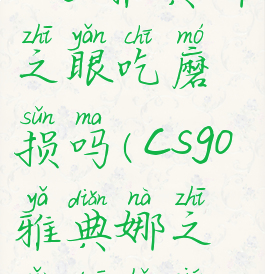 zhī yǎn chī mó
之眼吃磨
sǔn ma
损吗(CSGO
yǎ diǎn nà zhī
雅典娜之